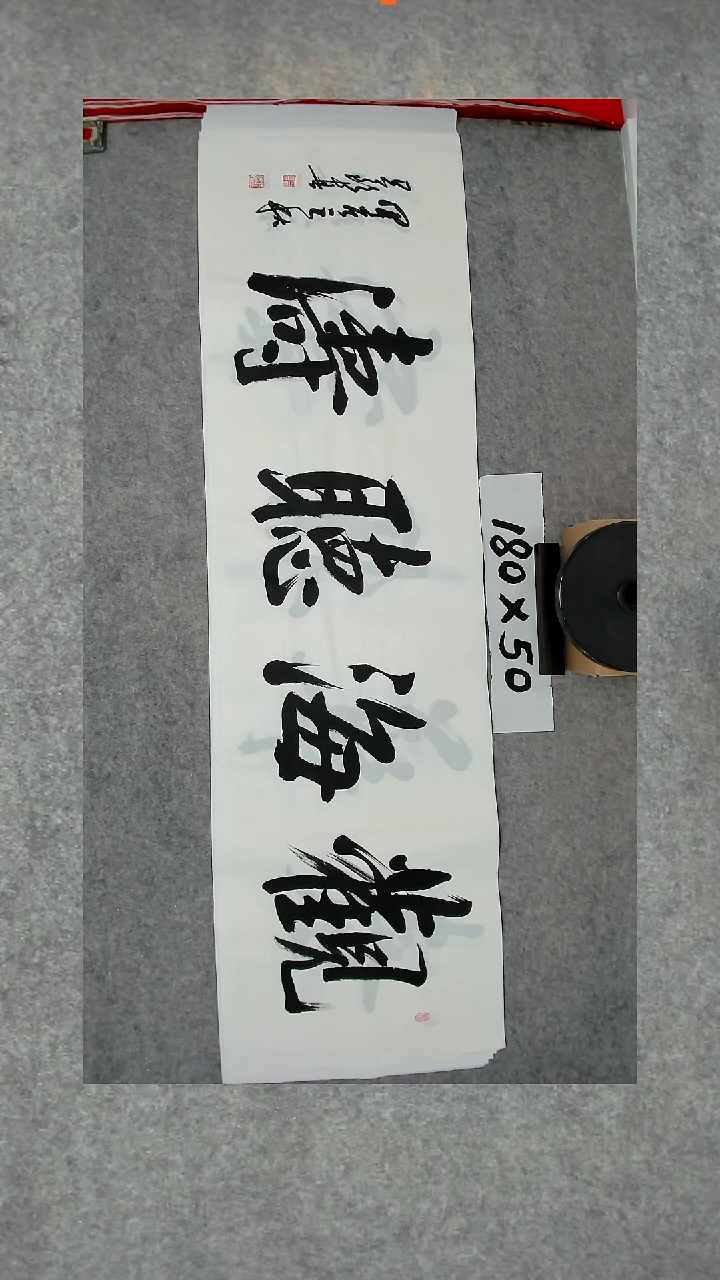 觀海聽濤
180×50